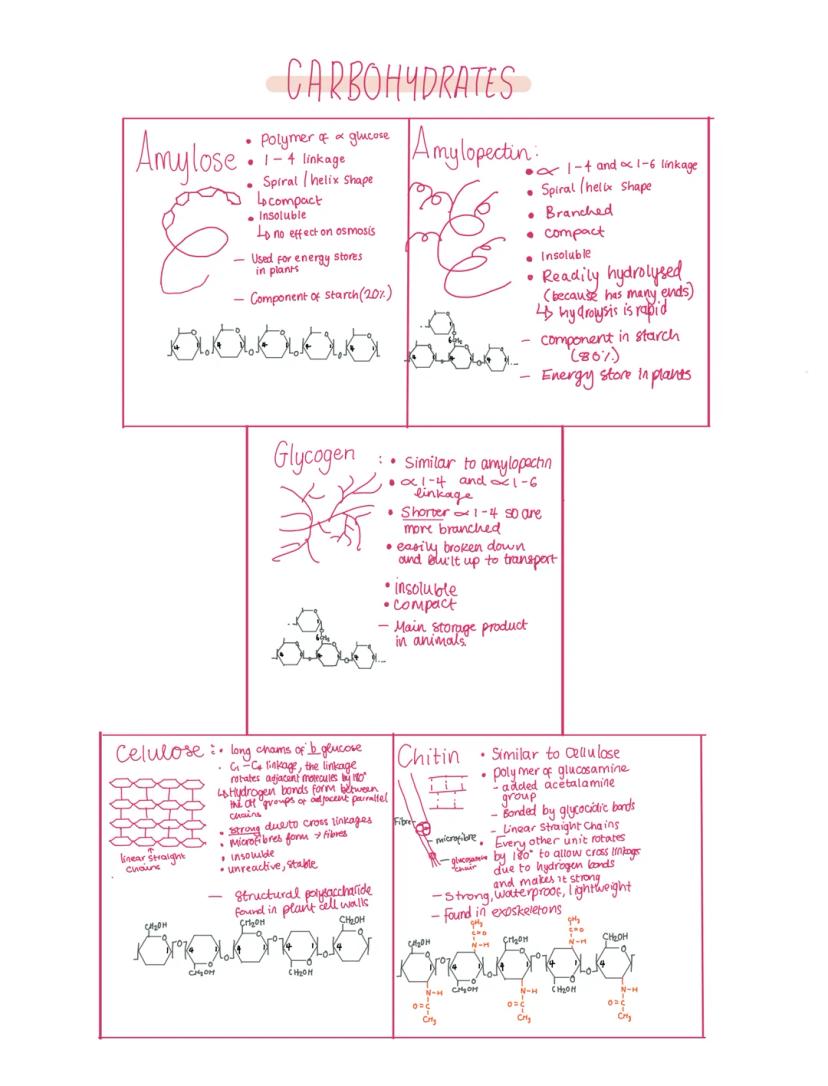 CARBOHYDRATES
Amylose
• Polymer of ∝ glucose
• 1 – 4 linkage
• Spiral / helix shape
↳ compact
• Insoluble
↳ no effect on osmosis
– Used for energy stores
in plants
– Component of starch (20%)
4 1 O 4 1 O 4 1 O 4 1 O 4 1
Amylopectin:
• ∝ 1-4 and ∝ 1-6 linkage
• Spiral / helix shape
• Branched
• compact
• Insoluble
• Readily hydrolysed
(because has many ends)
↳ hydrolysis is rapid
– component in starch
(80%)
– Energy store in plants
Glycogen :
• Similar to amylopectin
• ∝ 1-4 and ∝ 1-6
linkage
• Shorter ∝ 1-4 so are
more branched
• easily broken down
and built up to transport
• insoluble
• compact
– Main storage product
in animals.
Celulose :
• long chains of b glucose
• C1 – C4 linkage, the linkage
rotates adjacent molecules by 180°
↳ Hydrogen bonds form between
the OH groups of adjacent parallel
chains
• strong due to cross linkages
• Microfibres form → fibres
• insoluble
• unreactive, stable
linear straight
chains
– Structural polysaccharide
found in plant cell walls
CH2OH CH2OH CH2OH
CH2OH CH2OH
Chitin
• Similar to Cellulose
• polymer of glucosamine
– added acetalamine
group
– Bonded by glycocidic bonds
– Linear Straight Chains
• Every other unit rotates
by 180° to allow cross linkages
due to hydrogen bonds
and makes it strong
Fibre
microfibre
glucosamine
chain
– Strong, waterproof, lightweight
– Found in exoskeletons
CH3 CH3
C=O C=O
N-H N-H
CH2OH CH2OH CH2OH
CH2OH CH2OH
N-H N-H N-H
O=C O=C O=C
CH3 CH3 CH3